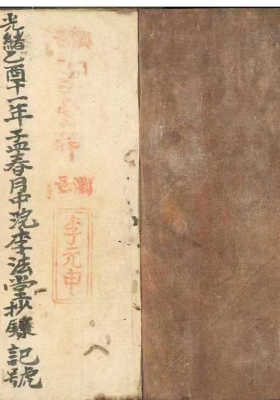 光緒乙酉十一年孟春月中浣李法堂抄錄 記號
李元申